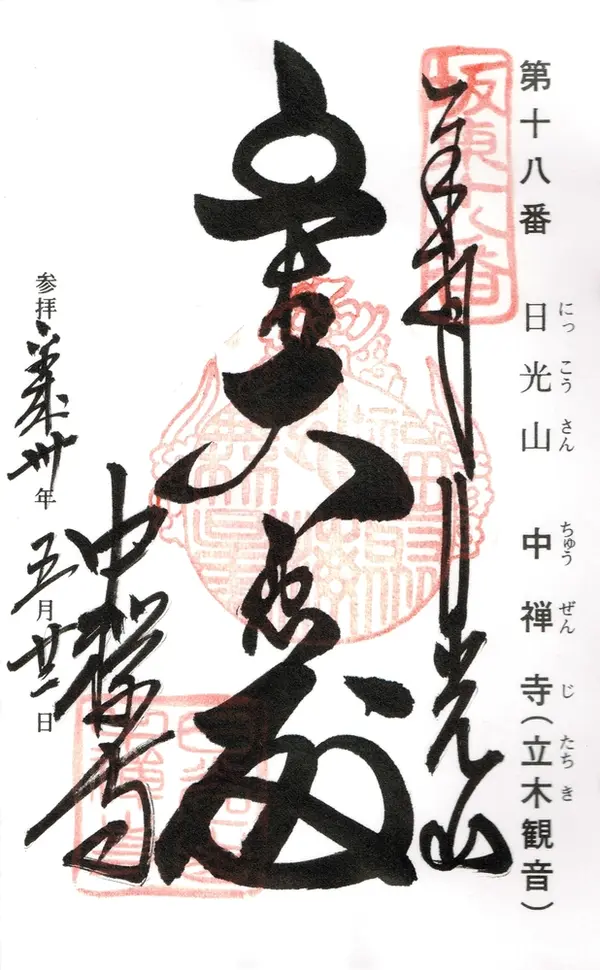 第十八番 日光山 中禅寺(立木観音)
にっこうさん ちゅうぜんじ たちき
坂東十八番
奉拝 日光山
大悲殿
中禅寺
参拝 平成卅年 五月廿一日